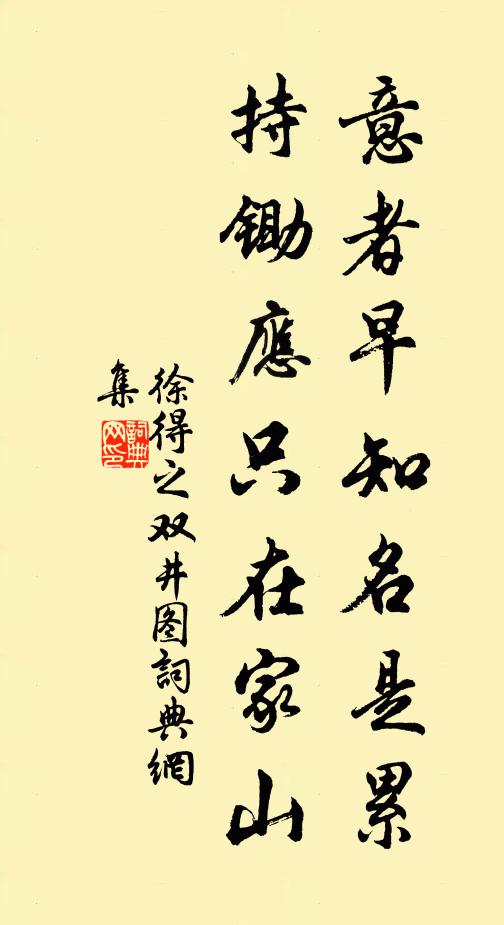 意者早知名是累
持鋤應只在家山
徐得之双井图詞典網
集
詞典网印